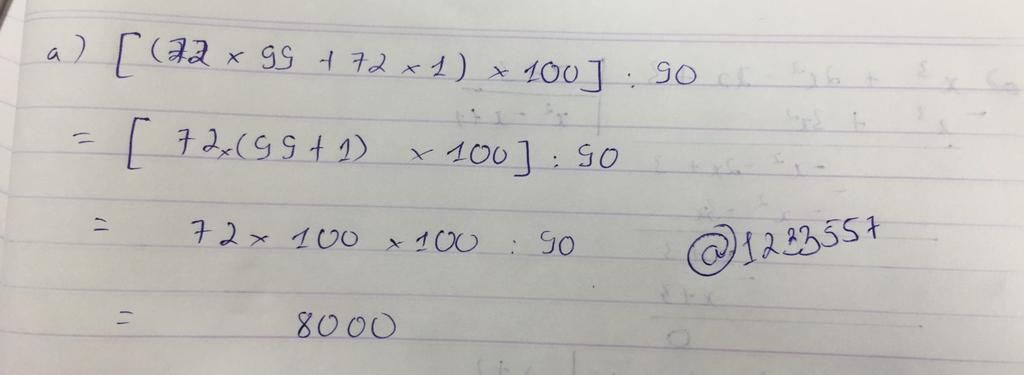 a) [(72 × 99 + 72 × 1) × 100] : 90
= [ 72×(99 + 1) × 100] : 90
= 72 × 100 × 100 : 90
@1233557
= 8000